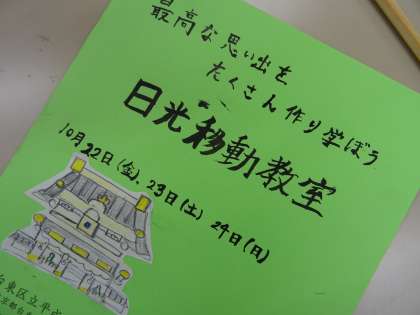 最高な思い出を
たくさん作り学ぼう
日光移動教室
10月22日(金)、23日(土) 24日(日)
台東区立平
京都台